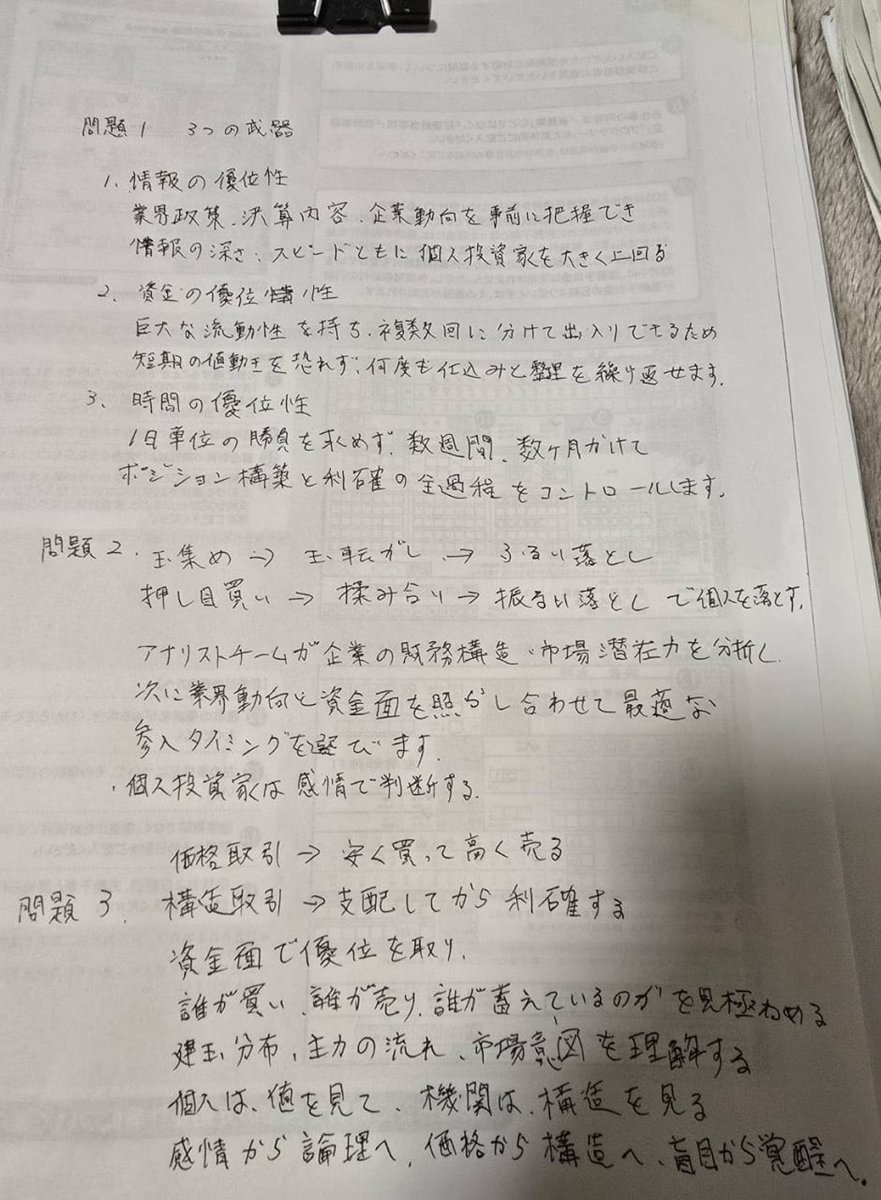 問題1 3つの武器
1、情報の優位性
業界政策、決算内容、企業動向を事前に把握でき
情報の深さ、スピードともに個人投資家を大きく上回る
2、資金の優位性
巨大な流動性を持ち、複数回に分けて出入りできるため
短期の値動きを恐れず、何度も仕込みと整理を繰り返せます。
3、時間の優位性
1日単位の勝負を求めず、数週間、数ヶ月かけて
ポジション構築と利確の全過程をコントロールします。
問題2. 玉集め→玉転がし→ふるい落とし
押し目買い→揉み合い→振るい落としで個人を落とす。
アナリストチームが企業の財務構造・市場潜在力を分析し
次に業界動向と資金面を照らし合わせて最適な
参入タイミングを選びます.
・個人投資家は感情で判断する.
価格取引→安く買って高く売る
問題3. 構造取引→支配してから利確する
資金面で優位を取り、
誰が買い、誰が売り、誰が蓄えているのかを見極わめる
建玉分布、主力の流れ、市場意図を理解する
個人は、値を見て、機関は、構造を見る
感情から論理へ、価格から構造へ、盲目から覚醒へ。